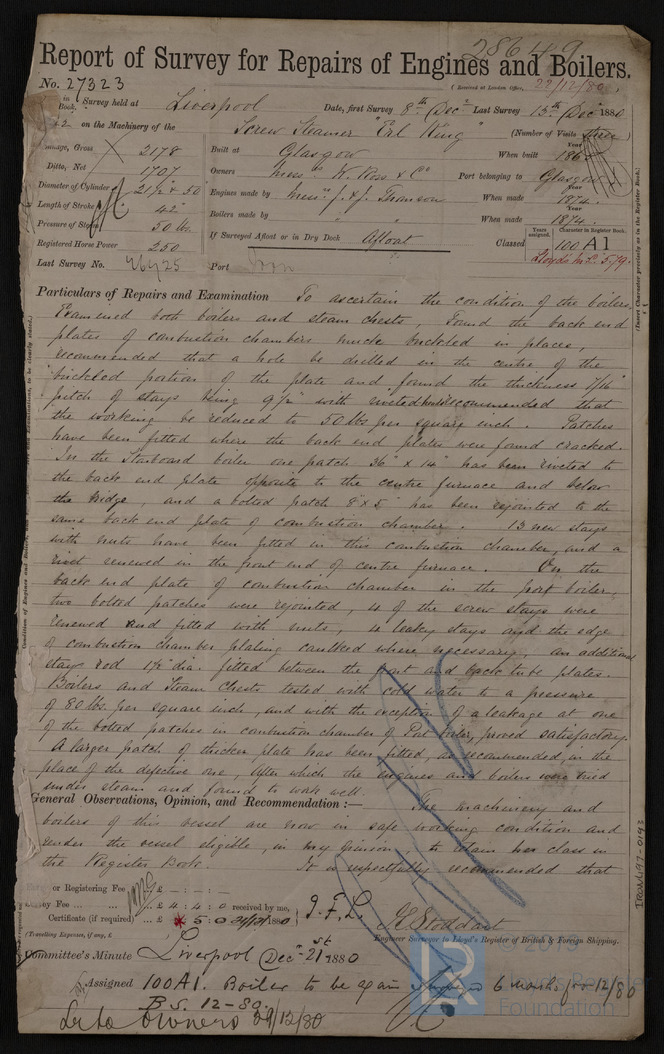 28649
Report of Survey for Repairs of Engines and Boilers.
No. 27323
(Received at London Office, 22/12/80
in Book. Survey held at Liverpool Date, first Survey 8th Decr Last Survey 15th Decr 1880
on the Machinery of the Screw Steamer "Erl King" (Number of Visits
Tonnage, Gross 2178
Ditto, Net 1707
Diameter of Cylinder
Length of Stroke 42"
Pressure of Steam 50 lbs
Registered Horse Power 250
Last Survey No. Port
Built at Glasgow When built
Owners Messrs Port belonging to Glasgow
Engines made by Messrs J. & J. Thomson When made 1874
Boilers made by " " When made 1874
If Surveyed Afloat or in Dry Dock Afloat
Years assigned. Character in Register Book.
Classed 100 A1
Particulars of Repairs and Examination To ascertain the condition of the boilers,
Examined both boilers and steam chests, Found the back end
plates of combustion chambers much buckled in places,
recommended that a hole be drilled in the centre of the
buckled portion of the plate and found the thickness 7/16"
pitch of stays being 9½" with riveted recommended that
the working be reduced to 50 lbs per square inch. Patches
have been fitted where the back end plates were found cracked.
In the Starboard boiler one patch 36" x 14" has been riveted to
the back end plate opposite to the centre furnace and below
the bridge, and a bolted patch 8" x 5" has been rejointed to the
same back end plate of combustion chamber. 13 new stays
with nuts have been fitted in this combustion chamber, and a
rivet renewed in the front end of centre furnace. On the
back end plate of combustion chamber in the port boiler,
two bolted patches were rejointed, 4 of the screw stays were
renewed and fitted with nuts, 4 leaky stays and the edge
of combustion chamber plating caulked where necessary, an additional
stay rod dia. fitted between the front and back tube plates.
Boilers and Steam Chests tested with cold water to a pressure
of 80 lbs. per square inch, and with the exception of a leakage at one
of the bolted patches in combustion chamber of Port boiler, proved satisfactory.
A larger patch of thicker plate has been fitted, as recommended, in the
place of the defective one, after which the engines and boilers were tried
under steam and found to work well.
General Observations, Opinion, and Recommendation :— The machinery and
boilers of this vessel are now in safe working condition and
render the vessel eligible, in my opinion, to retain her class in
the Register Book. It is respectfully recommended that
or Registering Fee £ - : - :
Survey Fee £ 4 : 4 : 0 received by me,
Certificate (if required) £ 5 : 0 1880
(Travelling Expenses, if any, £
J. F. L.
Stoddart
Engineer Surveyor to Lloyd's Register of British & Foreign Shipping.
Committee's Minute Liverpool Decr 21st 1880
Assigned 100A1. Boiler to be again surveyed 6 months from 12/80
B.S. 12-80.
owners 29/12/80
IRON197-0193
© 2019
Lloyd's Register
Foundation